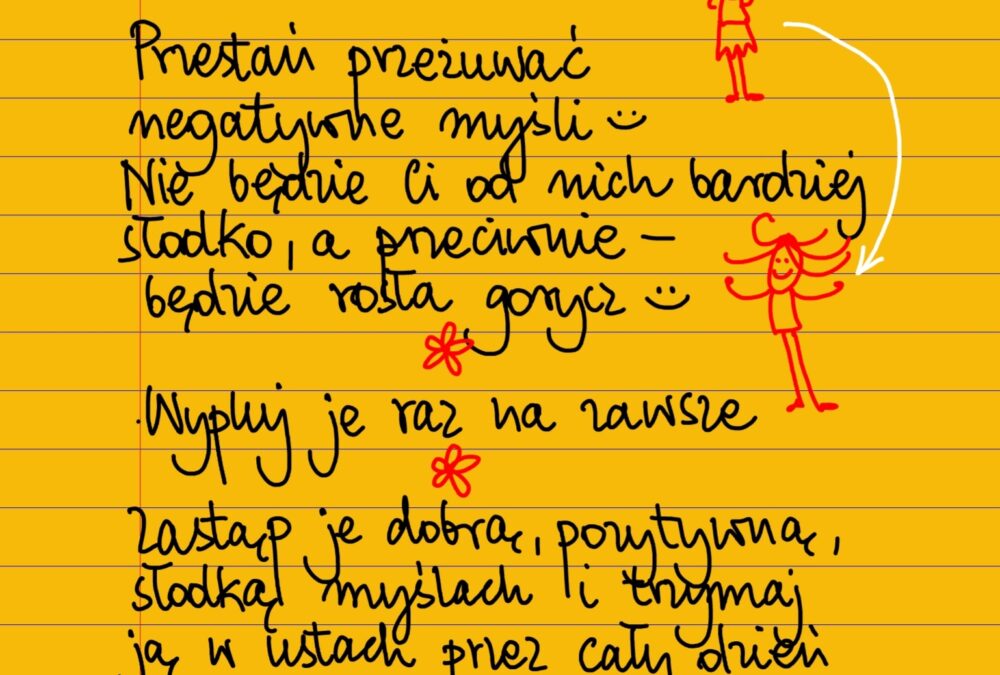 Przestań przeżuwać
negatywne myśli :)
Nie będzie Ci od nich bardziej
słodko, a przeciwnie –
będzie rosła gorycz :)
Wypluj je raz na zawsze
Zastąp je dobrą, pozytywną,
słodką myślach i trzymaj
ją w ustach przez cały dzień